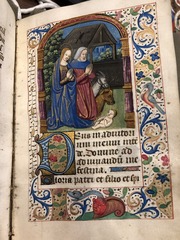 Deus in adiutori
um meum inten
de Domine ad
adiuuandum me
festina.
Gloria patri et filio et